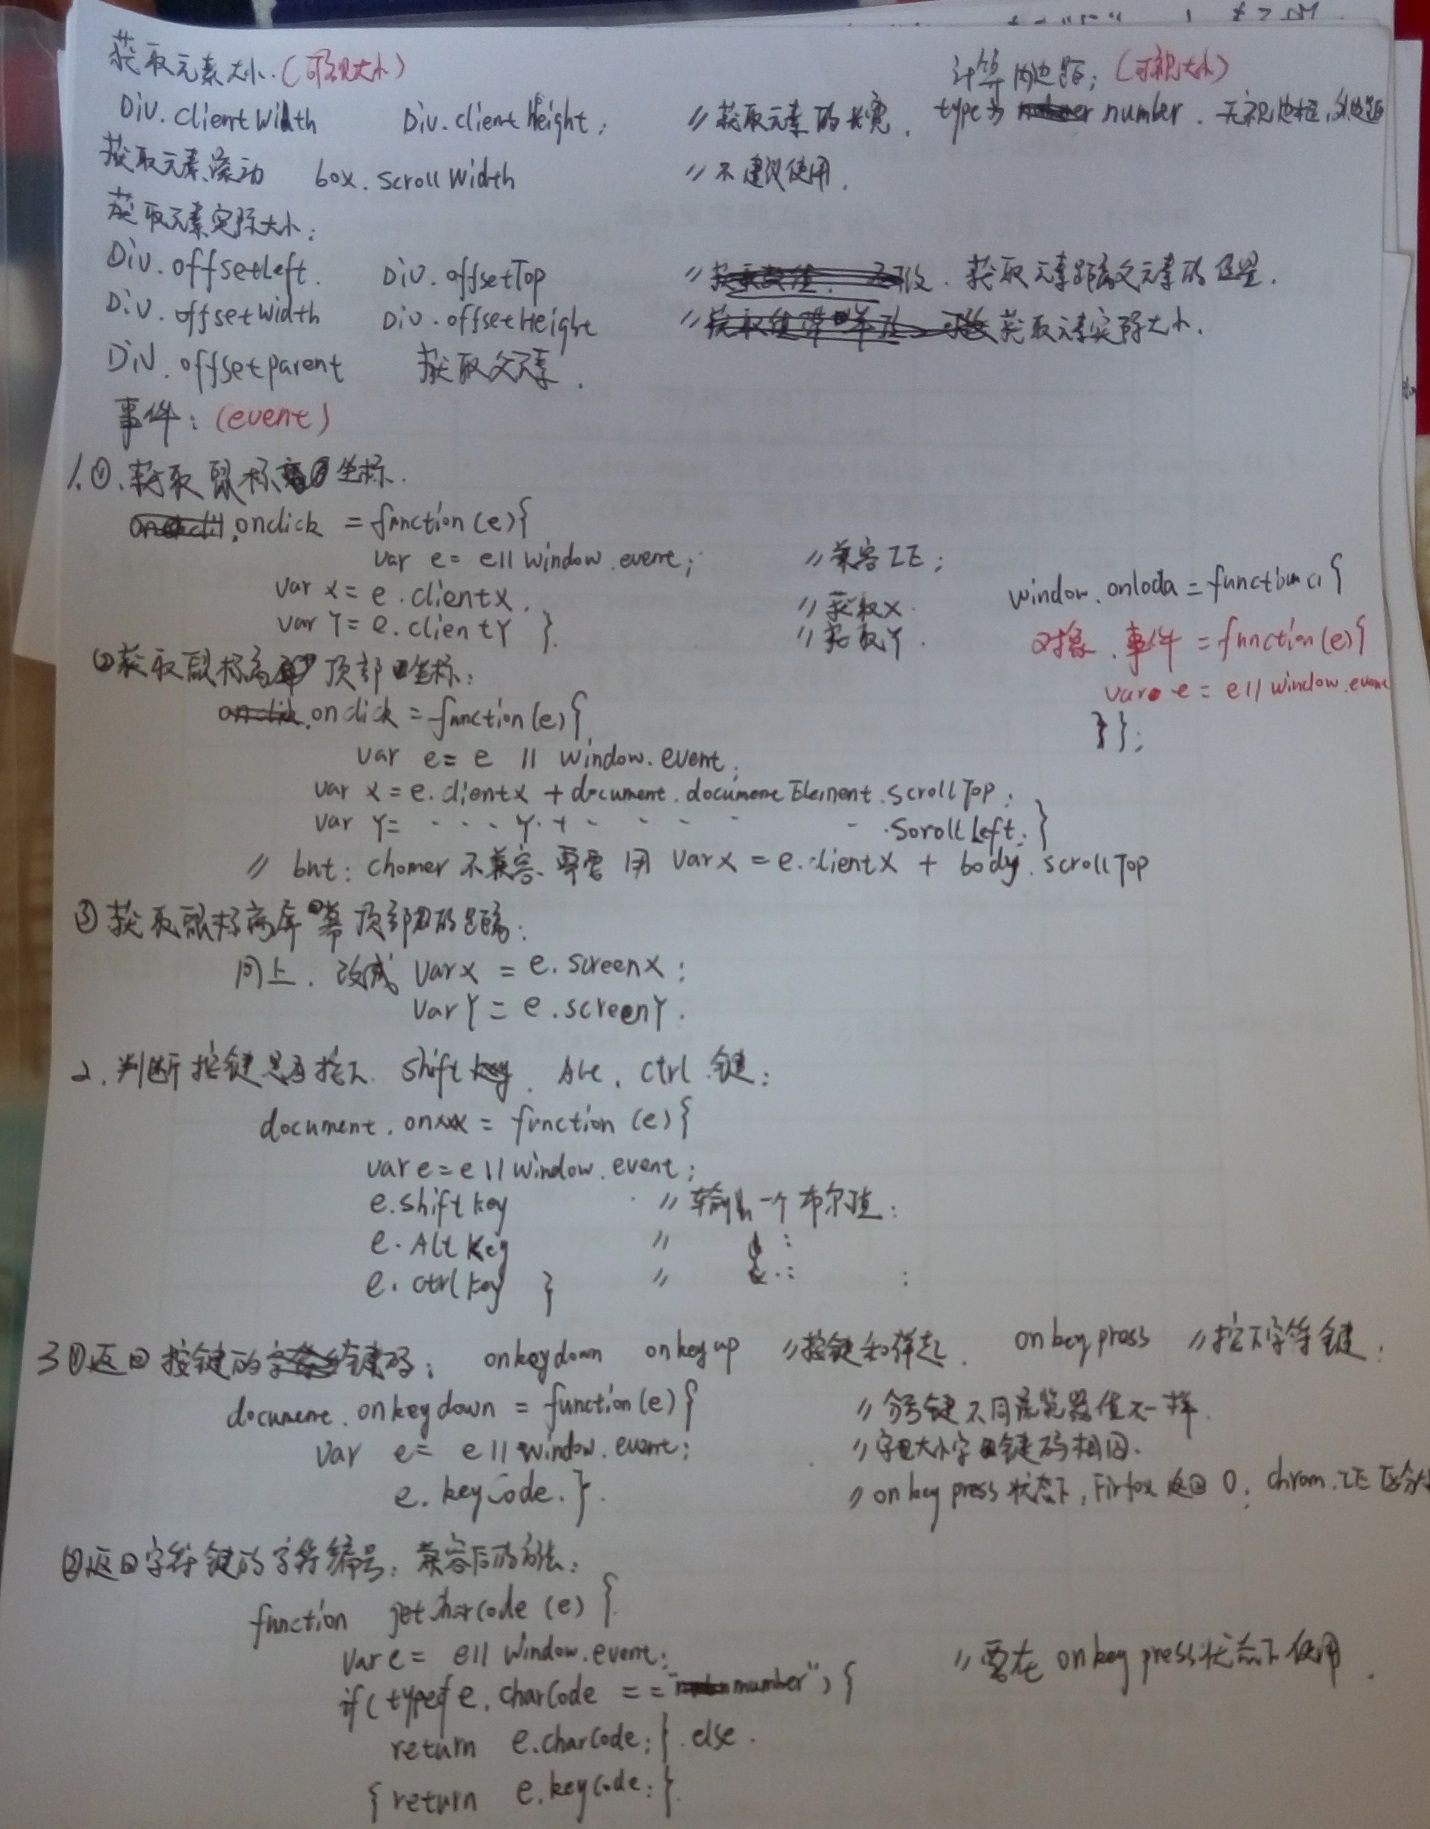 获取元素大小.(可视大小) 计算内边距;(可视大小)
Div.clientWidth Div.clientHeight; //获取元素的长宽. type为 number. 无视边框,外边距
获取元素滚动 box.scrollWidth //不建议使用.
获取元素实际大小:
Div.offsetLeft. Div.offsetTop // 获取元素距离父元素的位置.
Div.offsetWidth Div.offsetHeight // 获取元素实际大小.
Div.offsetparent 获取父元素.
事件:(event)
1.①.获取鼠标坐标.
.onclick = function(e){
var e= e||window.event; //兼容IE;
var x= e.clientX. //获取X.
var Y= e.clientY }. //获取Y.
window.onloda = function(){
对象.事件 = function(e){
var e = e||window.event
}};
②获取鼠标离顶部坐标:
.onclick = function(e){
var e= e || window.event;
var x = e.clientX + document.documentElement.scrollTop;
var Y= - - - Y + - - - - - .SorollLeft.}
// but: chomer 不兼容.要需用 var x = e.clientX + body.scrollTop
③获取鼠标离屏幕顶部的距离:
同上.改成 var x = e.screenX;
var Y = e.screenY.
2.判断按键是否按下 shift. Alt. ctrl 键:
document.onxxx = function (e){
var e=e||window.event;
e.shiftkey //输出一个布尔值:
e.AltKey //
e.ctrlkey } //
3①返回按键的键码: onkeydown onkeyup //按键和弹起. onkeypress //按下字符键:
document.onkeydown = function(e){ //分号键不同浏览器值不一样.
var e= e||window.event; //字母大小字母键码相同.
e.keyCode.}. //onkeypress状态下,Firfox返回0; chrom.IE区分大
②返回字符键的字符编号,兼容后的方法:
function getcharCode (e) {
var e= e|| window.event; //要在 onkeypress状态下使用.
if(typeof e.charCode == "number"){
return e.charCode;} else.
{ return e.keyCode;}